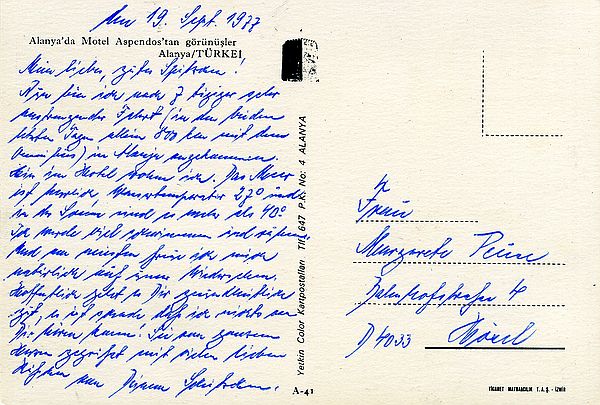 den 19. Sept. 1977
Alanya'da Motel Aspendos'tan görünüşler
Alanya/TÜRKEI
Mein lieber, süßes
Nun bin ich nach 7 tägiger sehr
anstrengender Fahrt (in den beiden
letzten Tagen allein 800 km mit dem
Omnibus) in Alanya angekommen.
Hier im Hotel wohne ich. Das Meer
ist herrlich Wassertemperatur 27° und
in der Sonne sind es mehr als 40°
Ich werde viel schwimmen und
Und am meisten freue ich mich
natürlich auf unser Wiedersehen.
Hoffentlich geht es Dir gesundheitlich
gut, es ist schade, daß ich nichts von
Dir hören kann! Sei von ganzem
Herzen gegrüßt mit vielen lieben
von Deinem
Yetkin Color Kartpostalları Tlf: 647 P.K. No: 4 ALANYA
A-41
Frau
Margarete
Bahnhofstraße 4
D 4033 Hösel
TİCARET MATBAACILIK T.A.Ş. - İZMİR